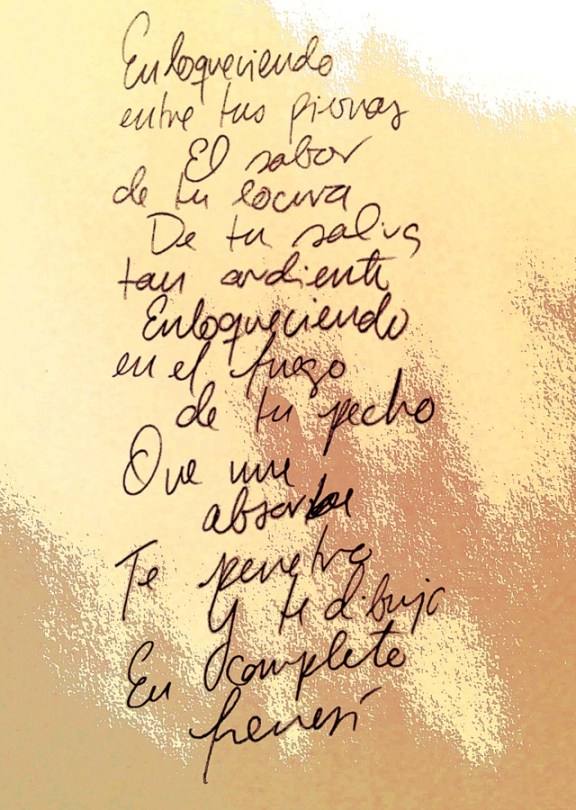 Enloqueciendo
entre tus piernas
El sabor
de tu locura
De tu saliva
tan ardiente
Enloqueciendo
en el fuego
de tu pecho
Que me
absorbe
Te penetra
Y te dibuja
En completo
frenesí